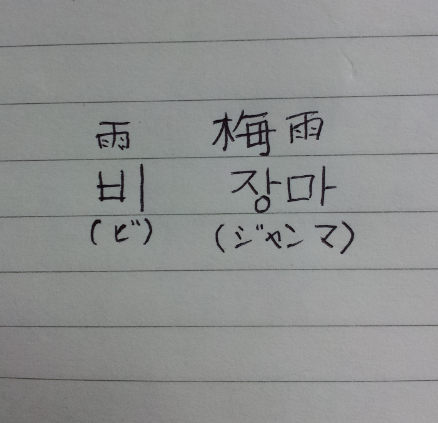 雨 梅雨
비 장마
(ビ) (ジャンマ)